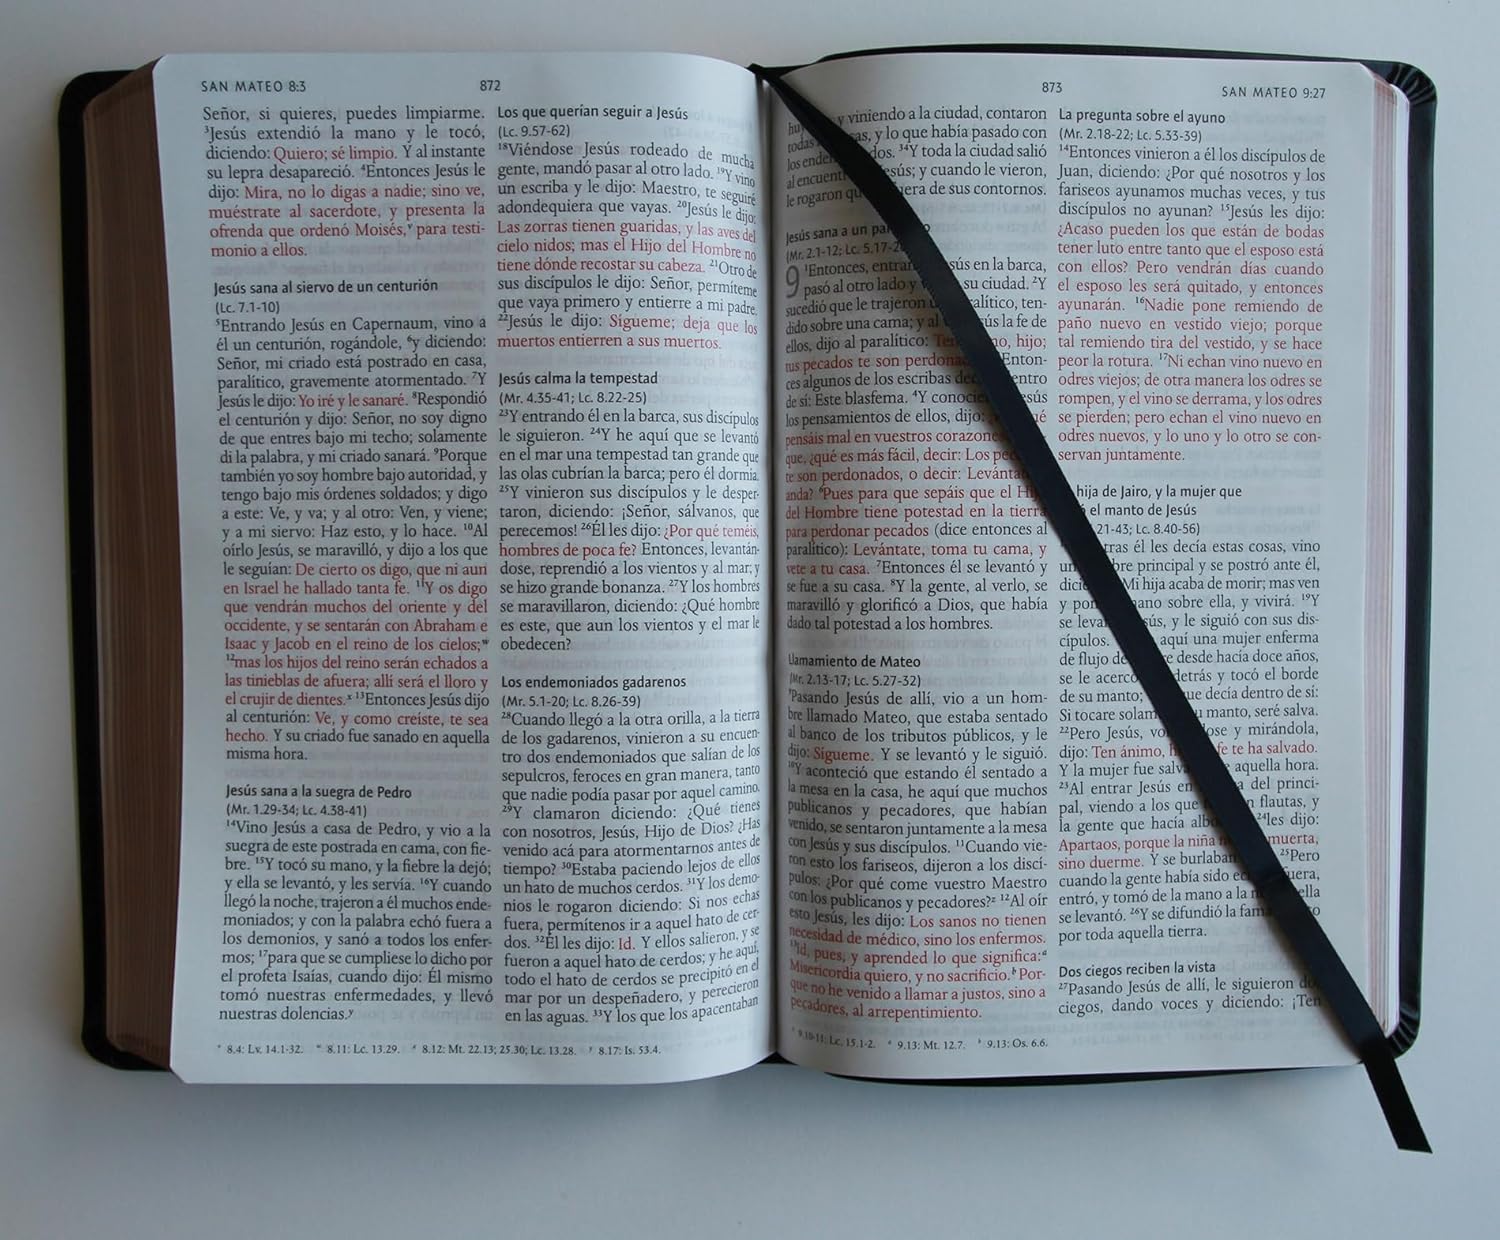 SAN MATEO 8:3
872
Señor, si quieres, puedes limpiarme.
³Jesús extendió la mano y le tocó,
diciendo: Quiero; sé limpio. Y al instante
su lepra desapareció. ⁴Entonces Jesús le
dijo: Mira, no lo digas a nadie; sino ve,
muéstrate al sacerdote, y presenta la
ofrenda que ordenó Moisés,ᵛ para testi-
monio a ellos.
Jesús sana al siervo de un centurión
(Lc. 7.1-10)
⁵Entrando Jesús en Capernaum, vino a
él un centurión, rogándole, ⁶y diciendo:
Señor, mi criado está postrado en casa,
paralítico, gravemente atormentado. ⁷Y
Jesús le dijo: Yo iré y le sanaré. ⁸Respondió
el centurión y dijo: Señor, no soy digno
de que entres bajo mi techo; solamente
di la palabra, y mi criado sanará. ⁹Porque
también yo soy hombre bajo autoridad, y
tengo bajo mis órdenes soldados; y digo
a este: Ve, y va; y al otro: Ven, y viene;
y a mi siervo: Haz esto, y lo hace. ¹⁰Al
oírlo Jesús, se maravilló, y dijo a los que
le seguían: De cierto os digo, que ni aun
en Israel he hallado tanta fe. ¹¹Y os digo
que vendrán muchos del oriente y del
occidente, y se sentarán con Abraham e
Isaac y Jacob en el reino de los cielos;ʷ
¹²mas los hijos del reino serán echados a
las tinieblas de afuera; allí será el lloro y
el crujir de dientes.ˣ ¹³Entonces Jesús dijo
al centurión: Ve, y como creíste, te sea
hecho. Y su criado fue sanado en aquella
misma hora.
Jesús sana a la suegra de Pedro
(Mr. 1.29-34; Lc. 4.38-41)
¹⁴Vino Jesús a casa de Pedro, y vio a la
suegra de este postrada en cama, con fie-
bre. ¹⁵Y tocó su mano, y la fiebre la dejó;
y ella se levantó, y les servía. ¹⁶Y cuando
llegó la noche, trajeron a él muchos ende-
moniados; y con la palabra echó fuera a
los demonios, y sanó a todos los enfer-
mos; ¹⁷para que se cumpliese lo dicho por
el profeta Isaías, cuando dijo: Él mismo
tomó nuestras enfermedades, y llevó
nuestras dolencias.ʸ
Los que querían seguir a Jesús
(Lc. 9.57-62)
¹⁸Viéndose Jesús rodeado de mucha
gente, mandó pasar al otro lado. ¹⁹Y vino
un escriba y le dijo: Maestro, te seguiré
adondequiera que vayas. ²⁰Jesús le dijo:
Las zorras tienen guaridas, y las aves del
cielo nidos; mas el Hijo del Hombre no
tiene dónde recostar su cabeza. ²¹Otro de
sus discípulos le dijo: Señor, permíteme
que vaya primero y entierre a mi padre.
²²Jesús le dijo: Sígueme; deja que los
muertos entierren a sus muertos.
Jesús calma la tempestad
(Mr. 4.35-41; Lc. 8.22-25)
²³Y entrando él en la barca, sus discípulos
le siguieron. ²⁴Y he aquí que se levantó
en el mar una tempestad tan grande que
las olas cubrían la barca; pero él dormía.
²⁵Y vinieron sus discípulos y le desper-
taron, diciendo: ¡Señor, sálvanos, que
perecemos! ²⁶Él les dijo: ¿Por qué teméis,
hombres de poca fe? Entonces, levantán-
dose, reprendió a los vientos y al mar; y
se hizo grande bonanza. ²⁷Y los hombres
se maravillaron, diciendo: ¿Qué hombre
es este, que aun los vientos y el mar le
obedecen?
Los endemoniados gadarenos
(Mr. 5.1-20; Lc. 8.26-39)
²⁸Cuando llegó a la otra orilla, a la tierra
de los gadarenos, vinieron a su encuen-
tro dos endemoniados que salían de los
sepulcros, feroces en gran manera, tanto
que nadie podía pasar por aquel camino.
²⁹Y clamaron diciendo: ¿Qué tienes
con nosotros, Jesús, Hijo de Dios? ¿Has
venido acá para atormentarnos antes de
tiempo? ³⁰Estaba paciendo lejos de ellos
un hato de muchos cerdos. ³¹Y los demo-
nios le rogaron diciendo: Si nos echas
fuera, permítenos ir a aquel hato de cer-
dos. ³²Él les dijo: Id. Y ellos salieron, y se
fueron a aquel hato de cerdos; y he aquí,
todo el hato de cerdos se precipitó en el
mar por un despeñadero, y perecieron
en las aguas. ³³Y los que los apacentaban
ᵛ 8.4: Lv. 14.1-32. ʷ 8.11: Lc. 13.29. ˣ 8.12: Mt. 22.13; 25.30; Lc. 13.28. ʸ 8.17: Is. 53.4.
873
SAN MATEO 9:27
y viniendo a la ciudad, contaron
todas y lo que había pasado con
los ³⁴Y toda la ciudad salió
al y cuando le vieron,
le rogaron fuera de sus contornos.
Jesús sana a un
(Mr. 2.1-12; Lc. 5.17-26)
9 ¹Entonces, Jesús en la barca,
pasó al otro lado y su ciudad. ²Y
sucedió que le trajeron paralítico, ten-
dido sobre una cama; y al la fe de
ellos, dijo al paralítico: hijo;
tus pecados te son Enton-
ces algunos de los escribas dentro
de sí: Este blasfema. ⁴Y Jesús
los pensamientos de ellos, dijo: qué
pensáis mal en vuestros corazones
que, ¿qué es más fácil, decir: Los
te son perdonados, o decir:
anda? ⁶Pues para que sepáis que el Hijo
del Hombre tiene potestad en la tierra
para perdonar pecados (dice entonces al
paralítico): Levántate, toma tu cama, y
vete a tu casa. ⁷Entonces él se levantó y
se fue a su casa. ⁸Y la gente, al verlo, se
maravilló y glorificó a Dios, que había
dado tal potestad a los hombres.
Llamamiento de Mateo
(Mr. 2.13-17; Lc. 5.27-32)
⁹Pasando Jesús de allí, vio a un hom-
bre llamado Mateo, que estaba sentado
al banco de los tributos públicos, y le
dijo: Sígueme. Y se levantó y le siguió.
¹⁰Y aconteció que estando él sentado a
la mesa en la casa, he aquí que muchos
publicanos y pecadores, que habían
venido, se sentaron juntamente a la mesa
con Jesús y sus discípulos. ¹¹Cuando vie-
ron esto los fariseos, dijeron a los discí-
pulos: ¿Por qué come vuestro Maestro
con los publicanos y pecadores?ᶻ ¹²Al oír
esto Jesús, les dijo: Los sanos no tienen
necesidad de médico, sino los enfermos.
¹³Id, pues, y aprended lo que significa:ᵃ
Misericordia quiero, y no sacrificio.ᵇ Por-
que no he venido a llamar a justos, sino a
pecadores, al arrepentimiento.
La pregunta sobre el ayuno
(Mr. 2.18-22; Lc. 5.33-39)
¹⁴Entonces vinieron a él los discípulos de
Juan, diciendo: ¿Por qué nosotros y los
fariseos ayunamos muchas veces, y tus
discípulos no ayunan? ¹⁵Jesús les dijo:
¿Acaso pueden los que están de bodas
tener luto entre tanto que el esposo está
con ellos? Pero vendrán días cuando
el esposo les será quitado, y entonces
ayunarán. ¹⁶Nadie pone remiendo de
paño nuevo en vestido viejo; porque
tal remiendo tira del vestido, y se hace
peor la rotura. ¹⁷Ni echan vino nuevo en
odres viejos; de otra manera los odres se
rompen, y el vino se derrama, y los odres
se pierden; pero echan el vino nuevo en
odres nuevos, y lo uno y lo otro se con-
servan juntamente.
hija de Jairo, y la mujer que
el manto de Jesús
21-43; Lc. 8.40-56)
él les decía estas cosas, vino
principal y se postró ante él,
Mi hija acaba de morir; mas ven
y pon mano sobre ella, y vivirá. ¹⁹Y
se Jesús, y le siguió con sus dis-
cípulos. aquí una mujer enferma
de flujo de desde hacía doce años,
se le acercó detrás y tocó el borde
de su manto; que decía dentro de sí:
Si tocare manto, seré salva.
²²Pero Jesús, y mirándola,
dijo: Ten ánimo, fe te ha salvado.
Y la mujer fue salva aquella hora.
²³Al entrar Jesús en a del princi-
pal, viendo a los que flautas, y
la gente que hacía ²⁴les dijo:
Apartaos, porque la niña muerta,
sino duerme. Y se burlaban ²⁵Pero
cuando la gente había sido fuera,
entró, y tomó de la mano a la ella
se levantó. ²⁶Y se difundió la fama
por toda aquella tierra.
Dos ciegos reciben la vista
²⁷Pasando Jesús de allí, le siguieron dos
ciegos, dando voces y diciendo: ¡Ten
ᶻ 9.10-11: Lc. 15.1-2. ᵃ 9.13: Mt. 12.7. ᵇ 9.13: Os. 6.6.